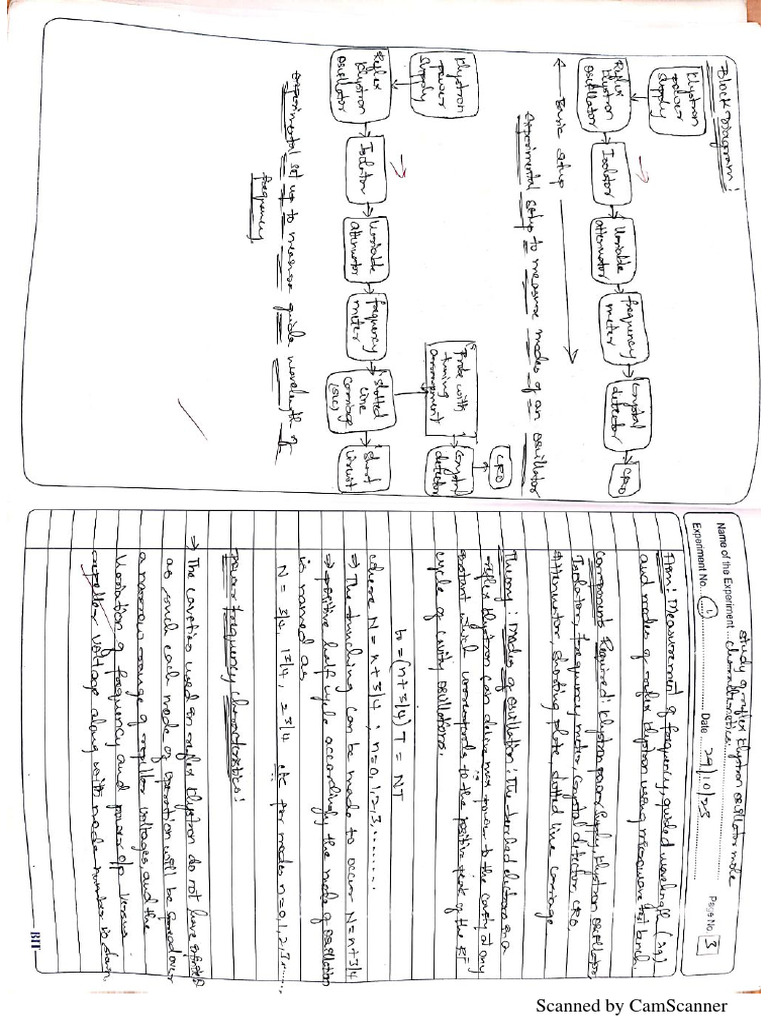 Block-Diagram:
Klystron
power
supply
Reflex
Klystron
oscillator
Isolator
Variable
attenuator
frequency
meter
Crystal
detector
CRO
Basic setup
experimental setup to measure modes of an oscillator
Klystron
power
supply
Reflex
Klystron
oscillator
Isolator
Variable
attenuator
frequency
meter
Slotted
Line
Carriage
(SLC)
Short
circuit
Probe with
tuning
arrangement
Crystal
detector
CRO
experimental set up to measure guide wavelength &
frequency
study of reflex klystron oscillator mode
Name of the Experiment characteristics
Experiment No. 1 Date 29/10/25 Page No. 3
Aim: Measurement of frequency, guided wavelength (λg)
and modes of reflex klystron using microwave test bench.
Components Required: Klystron power supply, klystron oscillator,
Isolator, frequency meter, crystal detector, CRO
Attenuator, shorting plate, slotted line carriage
Theory: Modes of oscillation: The bunched electrons in a
reflex klystron can deliver max power to the cavity at any
instant which corresponds to the positive peak of the RF
cycle of cavity oscillations.
t=(n+3/4)T = NT
where N = n+3/4, n=0,1,2,3,........
⇒ The bunching can be made to occur N=n+3/4
⇒ positive half cycle accordingly the mode of oscillation
is named as
N = 3/4, 1 3/4, 2 3/4 etc for modes n=0,1,2,3.....
frequency characteristics:
→ The cavities used in reflex klystron do not have
as such each mode of operation will be spread over
a narrow range of repeller voltages and the
Variation of frequency and power o/p versus
repeller voltage along with mode number is shown.
BIT
Scanned by CamScanner